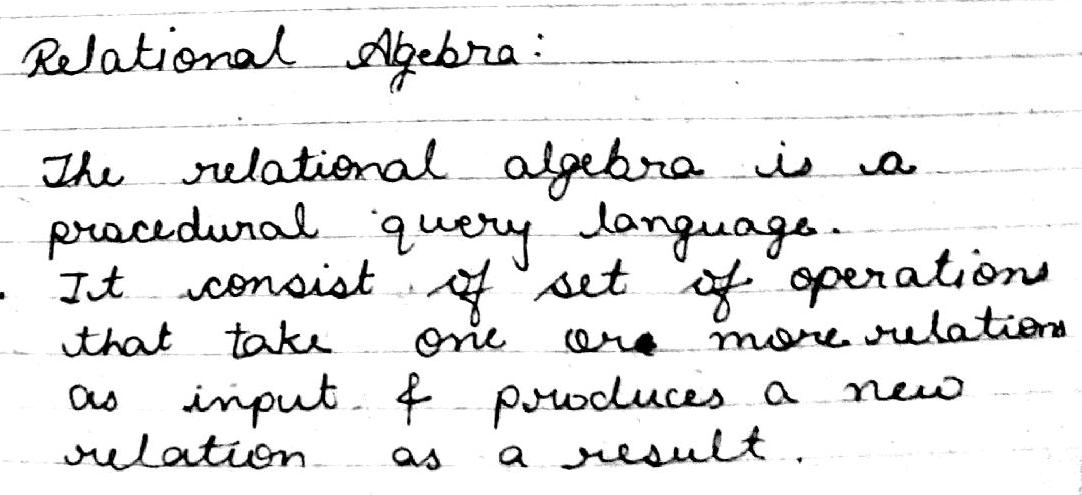 Relational Algebra:
The relational algebra is a
procedural query language.
It consist of set of operations
that take one or more relations
as input & produces a new
relation as a result.